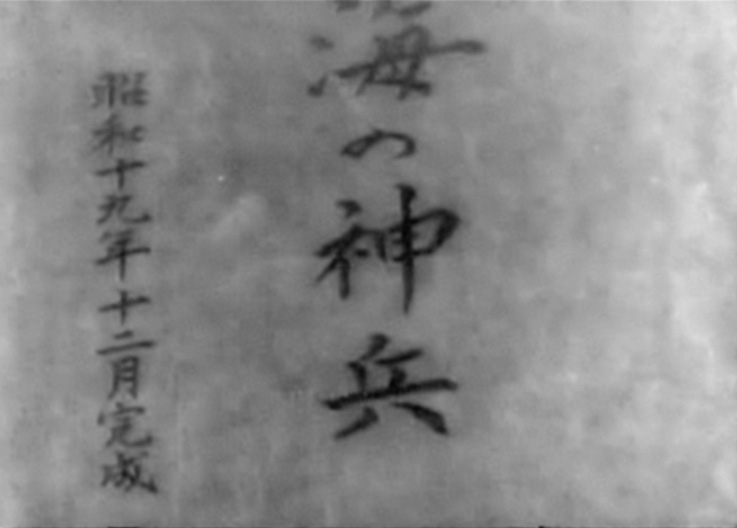 海の神兵
昭和十九年十二月完成